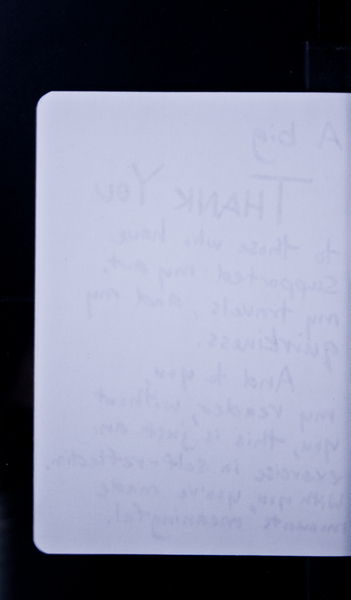 A big
THANK YOU
to those who have
supported my art,
my travels, and my
quirkiness.
And to you
my reader, without
you, this is just an
exercise in self-reflection.
With you, you've made
moments meaningful.